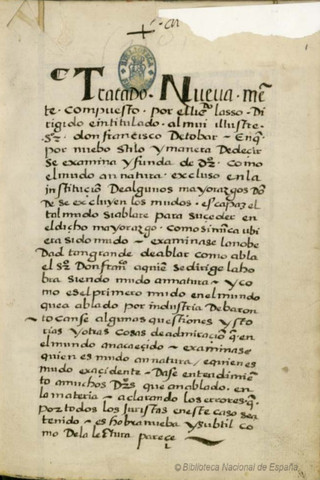 Tratado. Nueva.mē
te. compuesto. por el licᵈᵒ lasso. Di
rigido eintitulado. al mui illustre.
Sʳ. don francisco de tobar. Enq̄.
por nuebo stilo y manera Dedecir
Se examina y funda de dʳ. como
el mudo an natura. excluso en la
instituciō De algunos mayorazgos Dō
De se excluyen los mudos. es capaz el
tal mudo siablare para suceder en
el dicho mayorazgo. como si nūca ubi
era sido mudo examinase la nobe
Dad tan grande de ablar como abla
el Sʳ Don frāᶜᵒ aquiē se dirige la ho
bra siendo mudo an natura y co
mo es el primero mudo en el mundo
que a ablado por industria De baron
toca se algunas questiones y sto
rias y otras cosas de admiraciō q̄ en
el mundo an acaeçido examinase
quien es mudo an natura, e quien es
mudo ex accidente Dase entendimiē
to a muchos Dʳˢ que an ablado. en
la materia aclarando los errores. q̄.
por todos los Juristas en este caso se an
tenido es hobra nueba y subtil co
mo De la letura parece
© Biblioteca Nacional de España